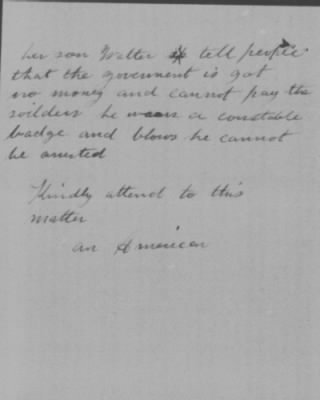 her son Walter tell people
that the goverment is got
no money and cannot pay the
soilders he wears a constable
badge and blows he cannot
be arrested
Kindly attend to this
matter
an American